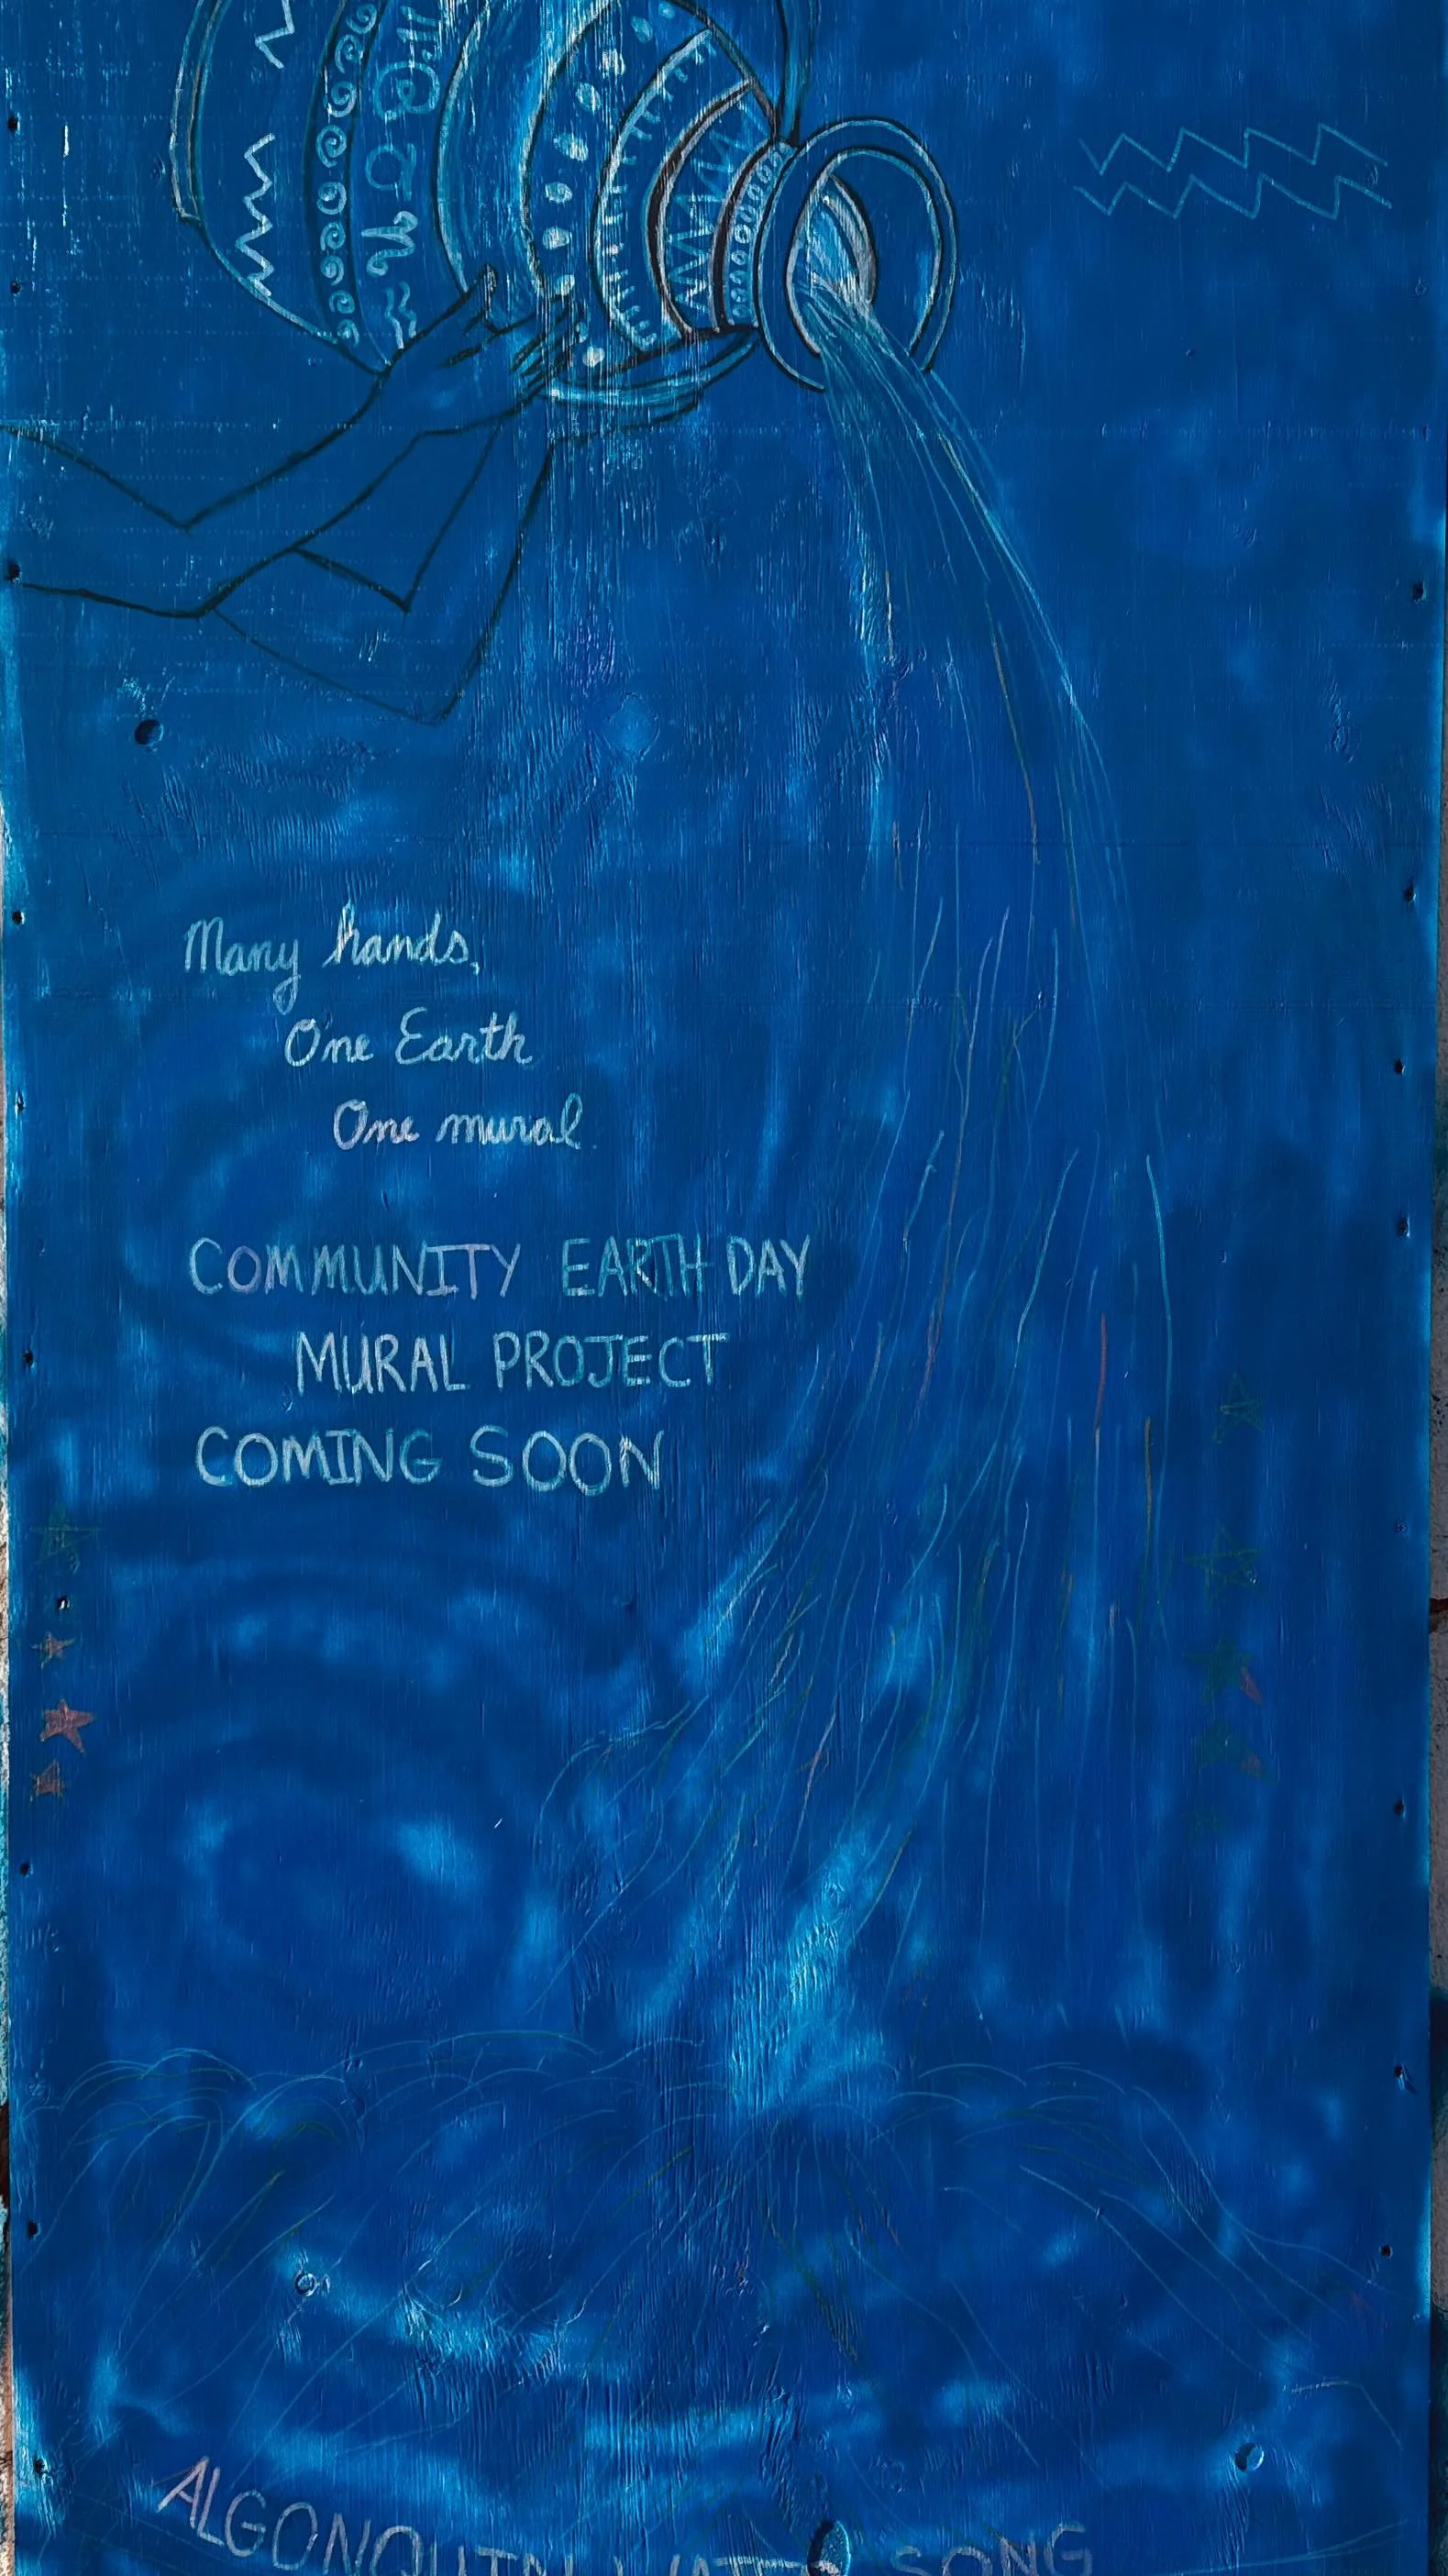 Many hands,
One Earth
One mural
COMMUNITY EARTH DAY
MURAL PROJECT
COMING SOON
ALGONQUIN WATER SONG